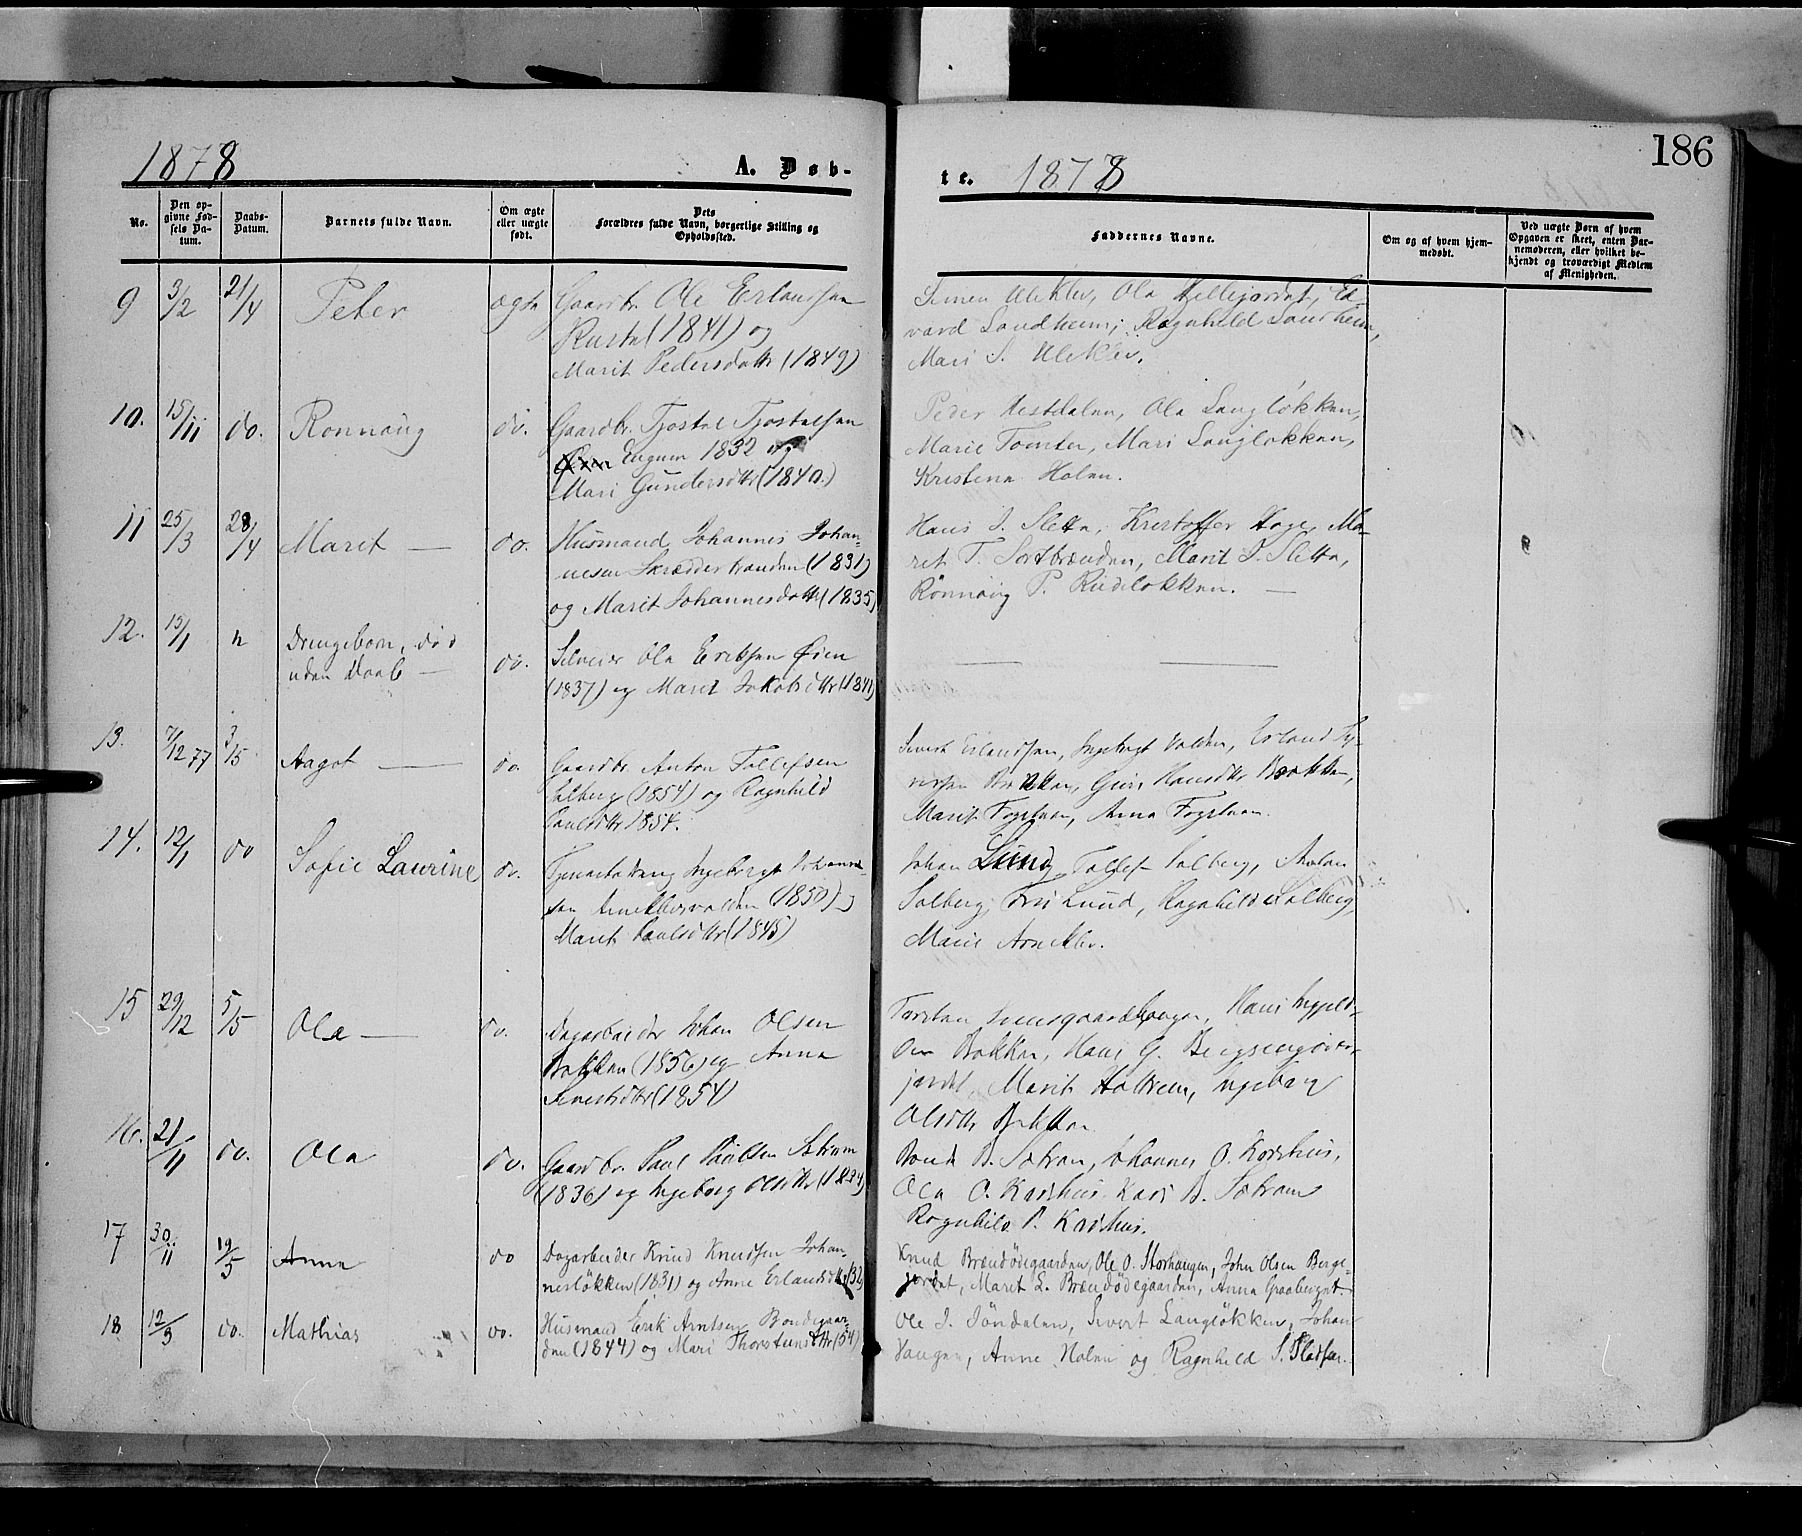 186
1878 A. Døb-
te. 1878
No.
Den op-
givne Fød-
sels Da-
tum.
Daabs-
Datum.
Barnets fulde Navn.
Om ægte
eller uægte
født.
Dets
Forældres fulde Navn, borgerlige Stilling og
Opholdssted.
Faddernes Navne.
Om og af hvem hjem-
medøbt.
Ved uægte Børn af hvem
Opgaven er skeet, enten Bar-
nemoderen, eller hvilket be-
kjendt og troværdigt Medlem
af Menigheden.
9 3/2 21/4 Peter ægte Gaardbr. Ole Erlandsen
(1841) og
Marit Pedersdattr (1849)
Simen Uleklev, Ola Ed-
vard Sandheim, Ragnhild Sandheim,
Mari S. Uleklev.
10. 15/11 do. Rønnaug do. Gaardbr. Tjøstel Tjøstelsen
Engum 1832 og
Mari Gundersdtr (1840.)
Peder Hestdalen, Ola Langløkken,
Marie Tomter, Mari Langløkken,
Kristine Holen.
11 25/3 28/4 Marit — do. Husmand Johannes Johan-
nesen Skrædderhaugen (1831)
og Marit Johannesdattr (1835)
Hans J. Sletta, Kristoffer Hage, Ma-
rit T. Sortbrænden, Marit J. Sletta,
Rønnaug P. Rudløkken. —
12. 15/1 " Drengebarn, død
uden Daab — do. Ola Eriksen Øien
(1837) og Marit Jakobsdtr (1841)
13. 7/12 77 3/5 Aagot — do. Gaardbr. Anton Tollefsen
Solberg (1854) og Ragnhild
Paulsdtr 1854.
Sivert Erlandsen, Ingebrigt Volden, Erland Sy-
versen Bakken, Guri Hansdtr Bakken,
Marit Fogstuen, Anna Fogstuen.
14. 12/1 do Sofie Laurine do. Ingebrigt Johanne-
sen (1850) og
Marit Paulsdtr (1845)
Johan Lund, Tollef Solberg, Anton
Solberg, Lund, Ragnhild Solberg,
Marie Arneklev.
15 29/12 5/5 Ola — do. Dagarbeider Johan Olsen
Bakken (1856) og Anna
Sivertsdtr (1854)
Torsten Hans
Bakken, Hans G.
jordet, Marit Ingeborg
Olsdtr Bakken
16. 21/11 do. Ola do. Gaardbr. Paul Paulsen Sætrum
(1836) og Ingeborg Olsdtr
B. Johannes O. Korshus,
Ola O. Korshus, Kari B.
Ragnhild P. Korshus.
17 30/11 19/5 Anna do Dagarbeider Knud Knudsen Johan-
nesløkken (1831) og Anne Erlandsdtr (32)
Knud Brændødegaarden, Ole O. Storhaugen, John Olsen Berge-
jordet, Marit L. Brændødegaarden, Anna Graabergst.
18 12/3 do. Mathias do. Husmand Erik Arntsen Bondegaar-
den (1844) og Mari Thorstensdtr (54)
Ole J. Jøndalen, Sivert Langløkken, Johan
Haugen, Anne Holen og Ragnhild S.